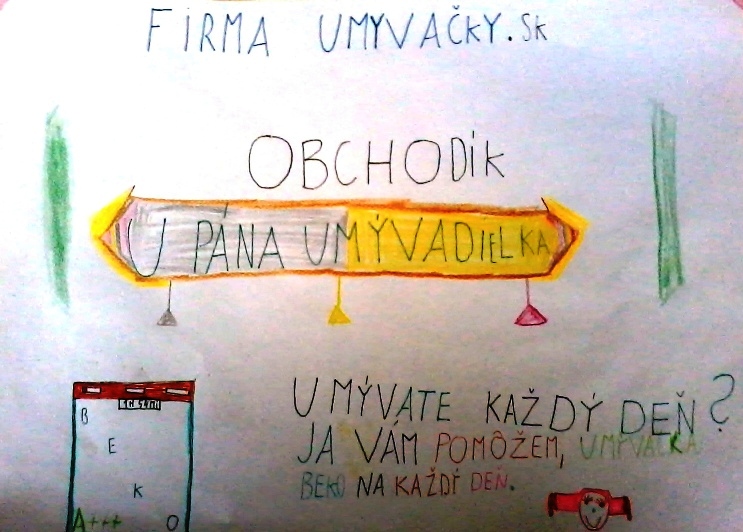 FIRMA UMYVAČKY.SK
OBCHODIK
U PÁNA UMÝVADIELKA
UMÝVATE KAŽDÝ DEŇ?
JA VÁM POMÔŽEM, UMÝVAČKA
BEKO NA KAŽDÝ DEŇ.
B
E
K
O
A+++